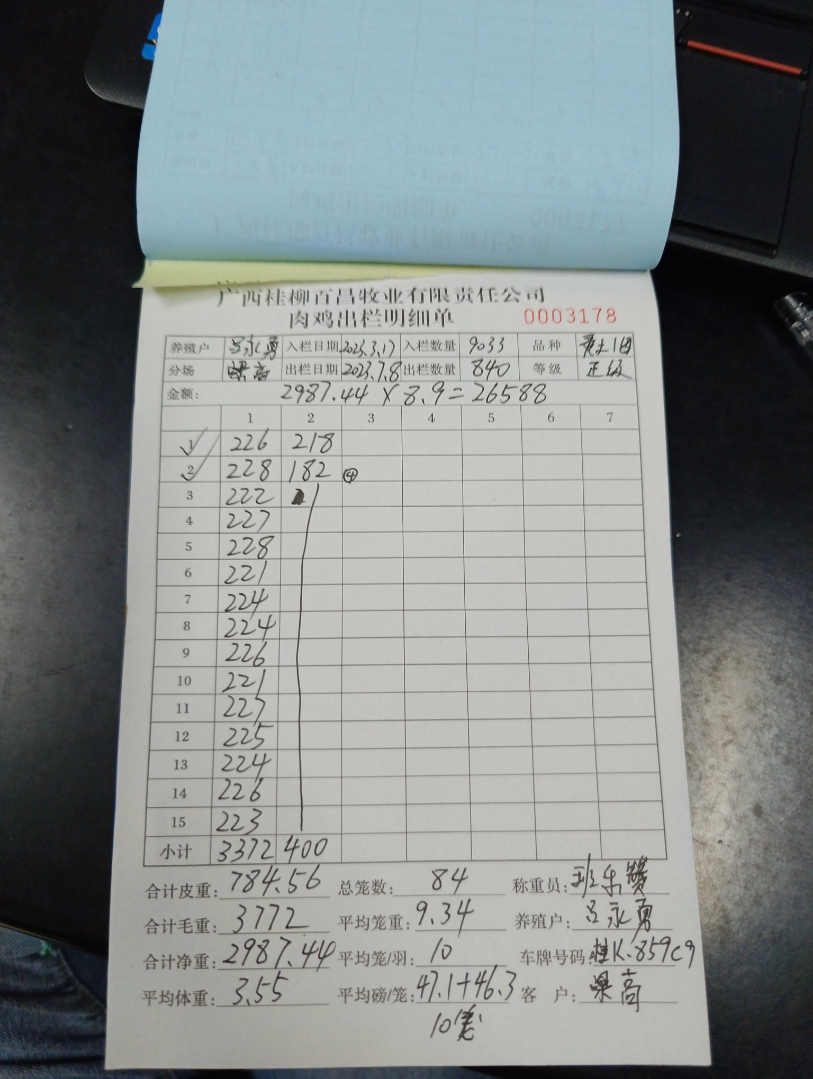 广西桂柳百昌牧业有限责任公司
肉鸡出栏明细单 0003178
养殖户 吕永勇 入栏日期 2023.3.17 入栏数量 9033 品种
分场 果高 出栏日期 2023.7.8 出栏数量 840 等级 正级
金额: 2987.44 × 8.9 = 26588
1 2 3 4 5 6 7
1 226 218
2 228 182 ④
3 222
4 227
5 228
6 221
7 224
8 224
9 226
10 221
11 227
12 225
13 224
14 226
15 223
小计 3372 400
合计皮重: 784.56 总笼数: 84 称重员: 班
合计毛重: 3772 平均笼重: 9.34 养殖户: 吕永勇
合计净重: 2987.44 平均笼/羽: 10 车牌号码: 桂K·859C9
平均体重: 3.55 平均磅/笼: 47.1+46.3 客 户: 果高
10